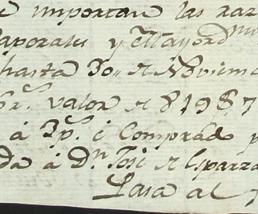 e importan las raz
aporales y Mayordmo
hasta 30,, de Noviem
or. valor de 81987
à Dn. è Comprado
da à Dn. José de Esparza
Pasa al